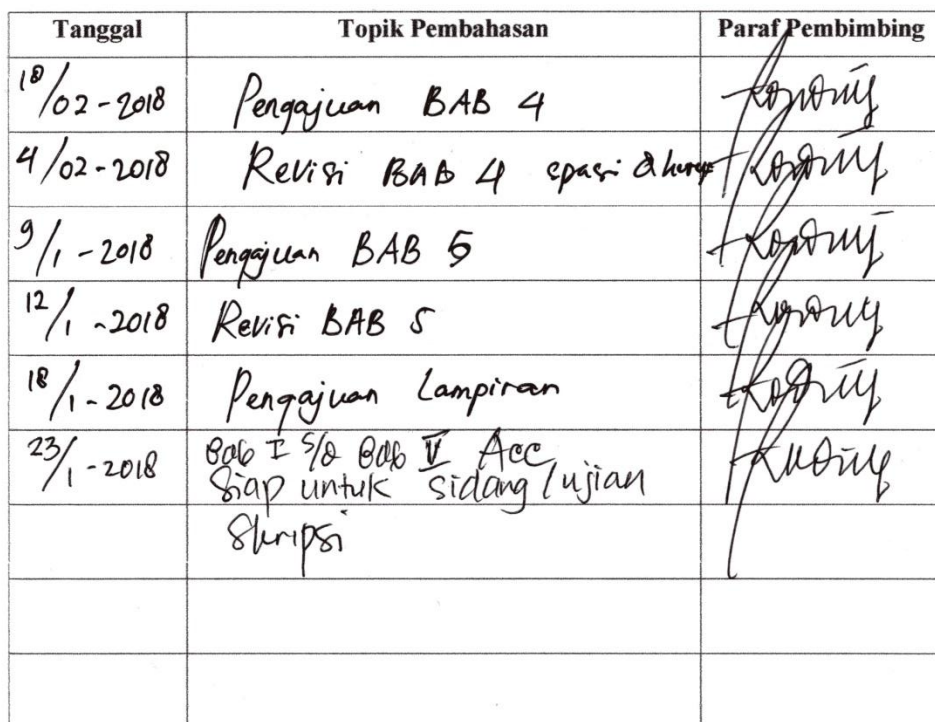 Tanggal Topik Pembahasan Paraf Pembimbing
18/02-2018 Pengajuan BAB 4
4/02-2018 Revisi BAB 4 spasi & huruf
9/1-2018 Pengajuan BAB 5
12/1-2018 Revisi BAB 5
18/1-2018 Pengajuan Lampiran
23/1-2018 Bab I s/d Bab V Acc
Siap untuk sidang/ujian
Skripsi